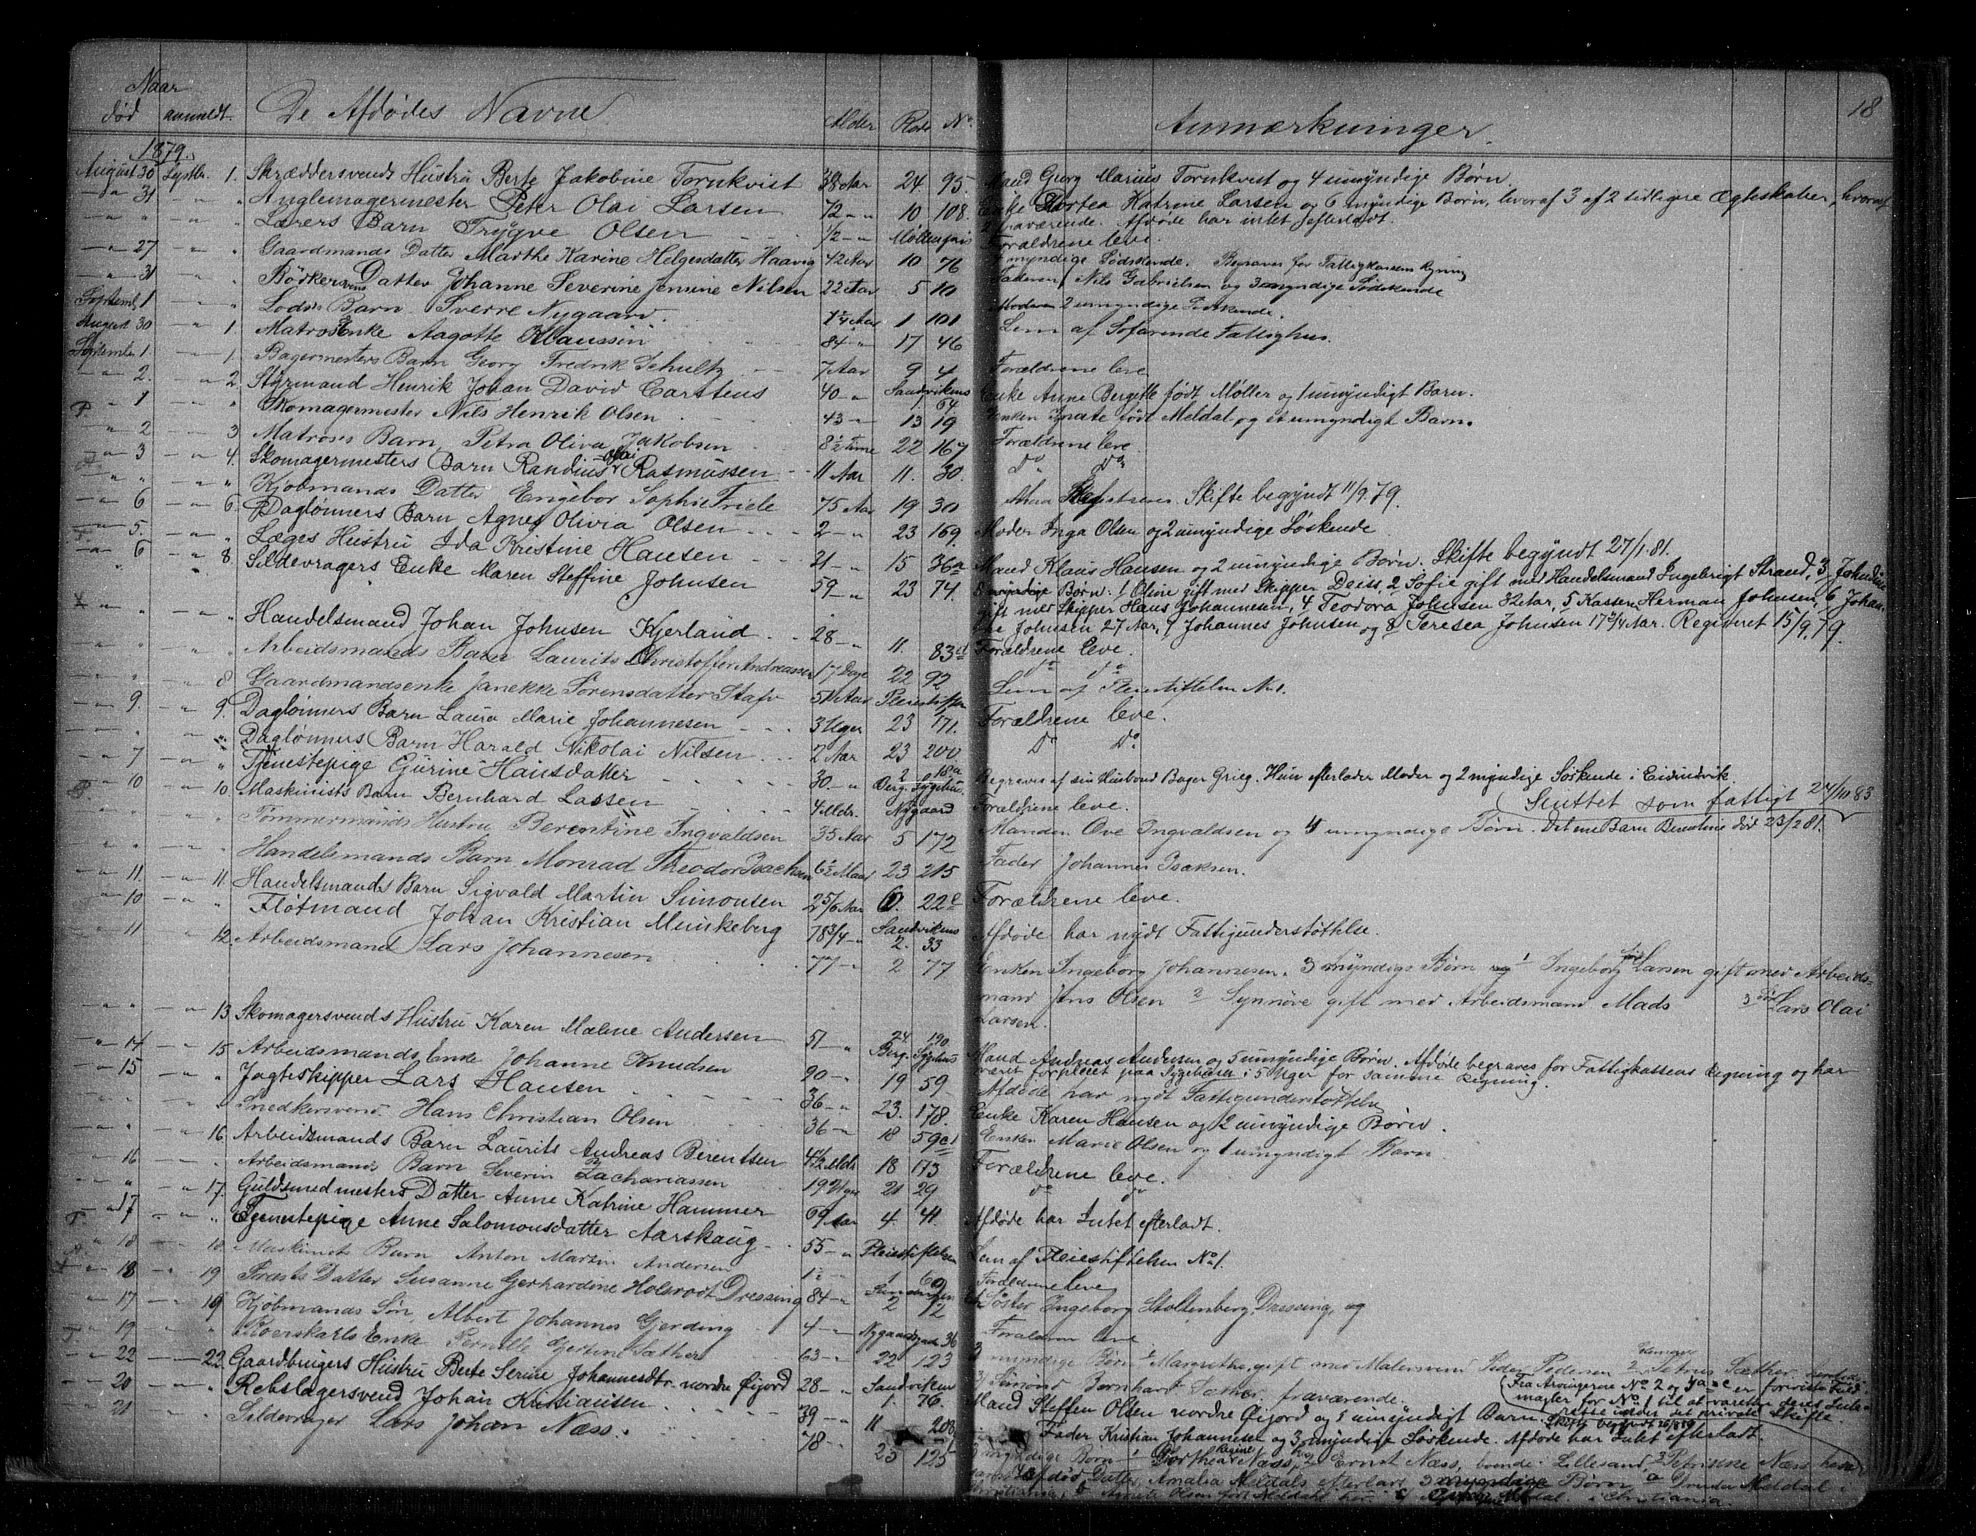 Naar
død anmeldt. De Afdødes Navne. Alder Rode No. Anmærkninger. 18
1879.
August 30 Septbr. 1. Skræddersvends Hustru Berte Jakobine Tornkvist 38 Aar 24 95. Mand Georg Marius Tornkvist og 4 umyndige Børn.
" 31. Peter Olai Larsen 72 10 108. Enke Dortea Katrene Larsen og 6 myndige Børn, hvoraf 3 af 2 tidligere Ægteskaber, hvoraf
Lærers Barn Trygve Olsen 1/2 fraværende. Afdøde har intet efterladt.
Forældrene leve.
" 27 Gaardmands Datter Marthe Karine Helgesdatter Haavig 42 Aar 10 76 myndige Sødskende. Begraves for Fattigkassens Regning
" 31 Bødkersvends Datter Johanne Severine Jensine Nilsen 22 Aar 5 10 Faderen Nils Gabrielsen og 3 umyndige Sødskende
Septembr. 1 Lods Barn Sverre Nygaard. 1 101 2 umyndige Sødskende.
August 30 " 1. Matros Enke Aagotte Klaussen 84 17 46 Lem af Søfarende Fattighus.
Septembr 1 1. Bagermesters Barn Georg Fredrik Schultz 7 Aar 9 4 Forældrene leve
" 2. 2. Styrmand Henrik Johan David Carstens 40 Sandvikens 64 Enke Anne Bergitte født Møller og 1 umyndigt Barn.
" 1 Skomagermester Nils Henrik Olsen 43 13 19 Enken født Meldal og et umyndigt Barn.
" 2 3 Matros Barn Petra Oliva Jakobsen 8 1/2 Time 22 167 Forældrene leve
" 3 4. Skomagermesters Barn Randius Olai Rasmussen 11 Aar 11. 30. Do Do
Kjøbmands Datter Engebor Sophie Friele 75 Aar 19 30 Registreres. Skifte begyndt 11/9 79.
" 6 6. Daglønners Barn Agnes Olivia Olsen 2 23 169 Moder Inga Olsen og 2 umyndige Søskende
" 5. Læges Hustru Ida Kristine Hansen 21 15 36a Mand Klaus Hansen og 2 umyndige Børn. Skifte begyndt 27/1 81.
" 6 8. Sildevragers Enke Maren Steffine Johnsen 59 23 74. 8 myndige Børn. 1 Oline gift med Skipper Deiss, 2 Sofie gift med Handelsmand Ingebrigt Strand, 3 Johndine
gift med Skipper Hans Johannesen, 4 Teodora Johnsen 32 Aar, 5 Kasserer Herman Johnsen, 6 Johan-
ne Johnsen 27 Aar, 7 Johannes Johnsen og 8 Teresea Johnsen 17 3/4 Aar. Registreret 15/9 79.
Handelsmand Johan Johnsen Kjerland 28 11. 83d Forældrene leve.
Arbeidsmands Barn Laurits Christoffer Andreassen 17 Dage 22 92 Do Do
8 Gaardmandsenke Janekke Sørensdatter Stafr Pleiestiftelsen Lem af Pleiestiftelsen No 1.
" 9. 9. Daglønners Barn Laura Marie Johannesen 3 Uger 23 171. Forældrene leve.
Daglønners Barn Harald Nikolai Nilsen 2 Aar 23 200 Do Do
" 7 Tjenestepige Gjurine Hansdatter 30 Berg. Sygehus. Begraves af sin Husbond Bager Grieg. Hun efterlader Moder og 2 myndige Søskende i Eivindvik.
" 10 10. Maskinists Barn Bernhard Lassen 4 Mdr. Nygaard Forældrene leve. Sluttet som fattigt 24/10 83
Tømmermands Hustru Berentine Ingvaldsen 35 Aar 5 172 Manden Ove Ingvaldsen og 4 umyndige Børn. Det ene Barn Berentine død 23/2 81.
Handelsmands Barn Monrad Theodor Isachsen 6 1/2 Maan 23 215 Fader Johannes Isaksen.
" 11. 11. Handelsmands Barn Sigvald Martin Simonsen 2 5/6 Aar 22c Forældrene leve.
" 10 Fløtmand Johan Kristian Munkeberg 78 3/4 Sandvikens 2. 33 Afdøde har nydt Fattigunderstøttelse.
" 11 12. Arbeidsmand Lars Johannesen 77 2 77 Enken Ingeborg Johannesen. 3 myndige Børn 1 Ingeborg Larsen gift med Arbeids-
mand Jens Olsen 2 Synnøve gift med Arbeidsmand Mads 3 Lars Olai
Larsen.
13. Skomagersvends Hustru Karen Malene Andersen 51 24. 190 Berg. Sygehus Mand Andreas Andersen og 5 umyndige Børn. Afdøde begraves for Fattigkassens Regning og har
været forpleiet paa Sygehuset i 5 Uger for samme Regning.
" 14. 15. Arbeidsmands Enke Johanne Knudsen 90 19 59 Afdøde har nydt Fattigunderstøttelse
" 15 Jagteskipper Lars Hansen 36 23. 178. Enke Karen Hansen og 2 umyndige Børn.
Snedkersvend Hans Christian Olsen 36 18 59c Enken Marie Olsen og 1 umyndigt Barn.
16. Arbeidsmands Barn Laurits Andreas Berentsen 4 1/2 Mdr. 18 173 Forældrene leve.
" 16 Arbeidsmands Barn Severin Zachariassen 19 Uger 21 29 Do Do
17. Guldsmedmesters Datter Anne Katrine Hammer 69 Aar 4. 41. Afdøde har Intet efterladt.
" 17 Tjenestepige Anne Salomonsdatter Aarskaug 55 Pleiestiftelsen Lem af Pleiestiftelsen No 1.
" 18 18. Maskinist Barn Anton Martin Andersen 1 69 Forældrene leve
" 18 19 Præsts Datter Susanne Gerhardine Holsrodt Dressing 84 2 12 Søster Ingeborg Stoltenberg Dressing, og
" 17 19 Kjøbmands Søn, Albert Johannes Gerding 4 Nygaardsgade 36 Forældrene leve.
" 19 Roerskarls Enke Pernille Gjertine Sæther 63 22 123 3 myndige Børn 1 Margrethe, gift med Malersvend Peder Pedersen 2 Petrus Sæther
3 Simond Bernhard Sæther, fraværende. Fra Arvingerne No 2 og 3 er forevist Fuld-
magter for No 1 til at varetage deres Inte-
resse under det private Skifte
" 22 22. Gaardbrugers Hustru Berte Serine Johannesdtr. nordre Øijord 28 Sandviken 1. 76. Mand Steffen Olsen nordre Øijord og 1 umyndigt Barn. Skifte begyndt
" 20 Rebslagersvend Johan Kristiansen 39 11 208 Fader Kristian Johannesen og 3 umyndige Søskende. Afdøde har Intet efterladt.
" 21 Sildevrager Lars Johan Næss. 78 23 125 myndige Børn 1 Dorthea Regine Næss, 2 Ernst Næss, boende i Lillesand, 3 Petrine Næss
afdød Datter, Amalia Meldals efterladte 3 myndige Børn a Meldal i
Christiania, b Agnete Olsen født Meldahl her, c Meldal i Christiania.